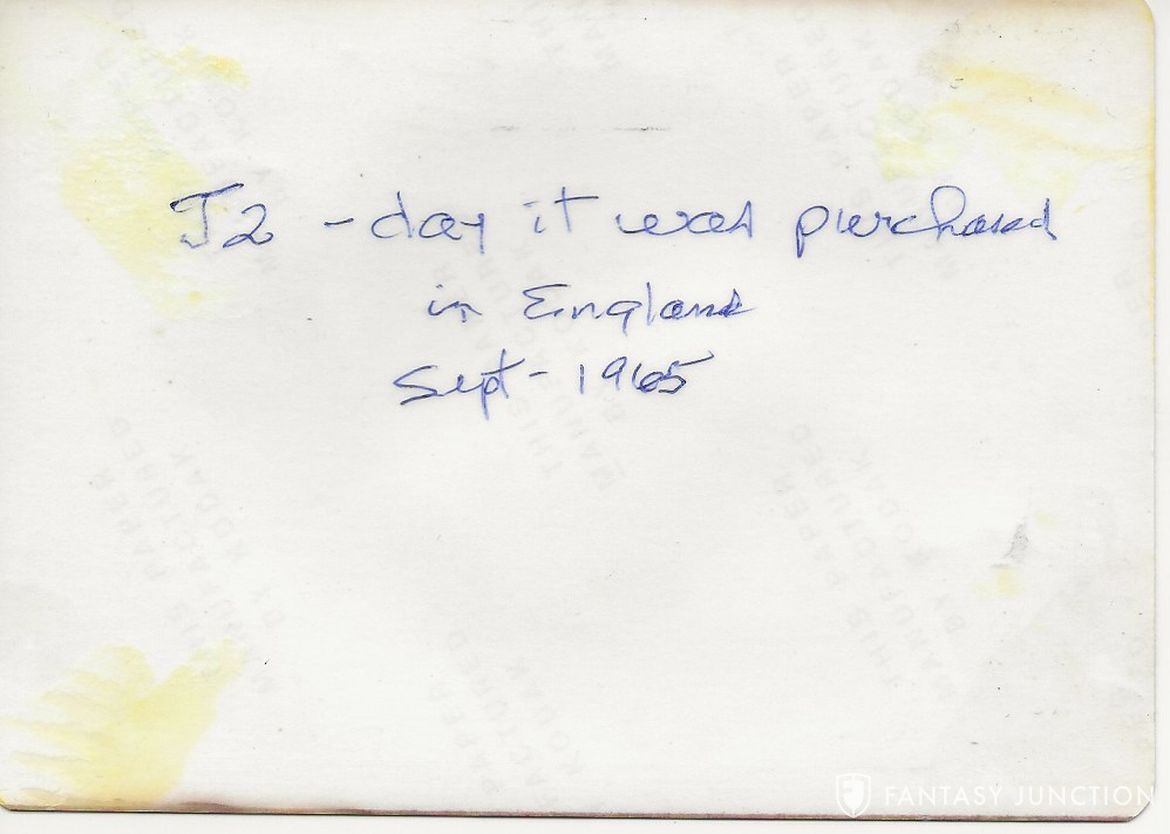 J2 - day it was purchased
in England
Sept - 1965
THIS PAPER
MANUFACTURED
BY KODAK
FANTASY JUNCTION